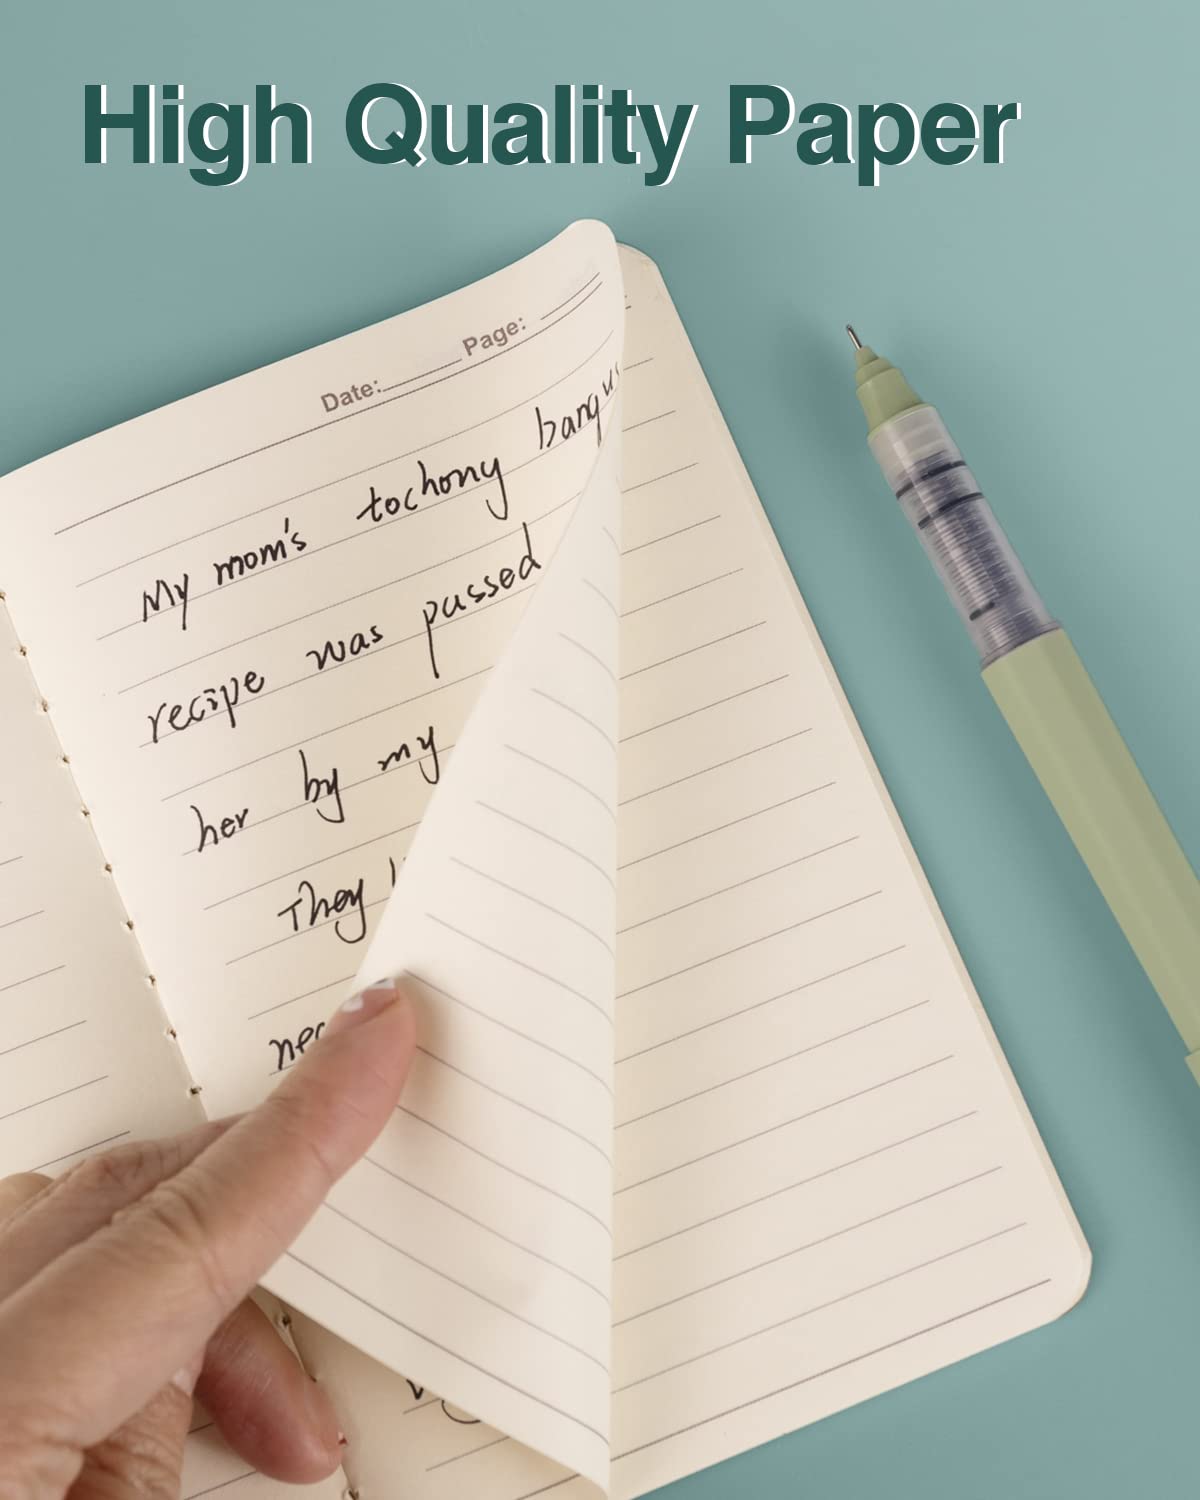 High Quality Paper
Date: Page:
My mom's tochony bangus
recipe was passed
her by my
They